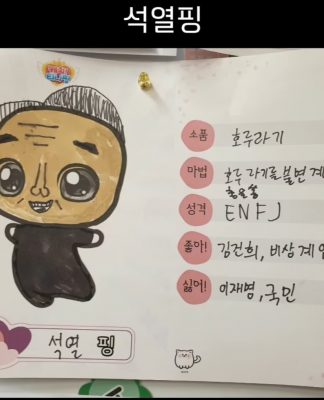 석열핑
캐치!
티니핑
소품 호루라기
마법 호루라기를 불면 계
성격 ENFJ
좋아! 김건희, 비상계엄
싫어! 이재명, 국민
석열 핑